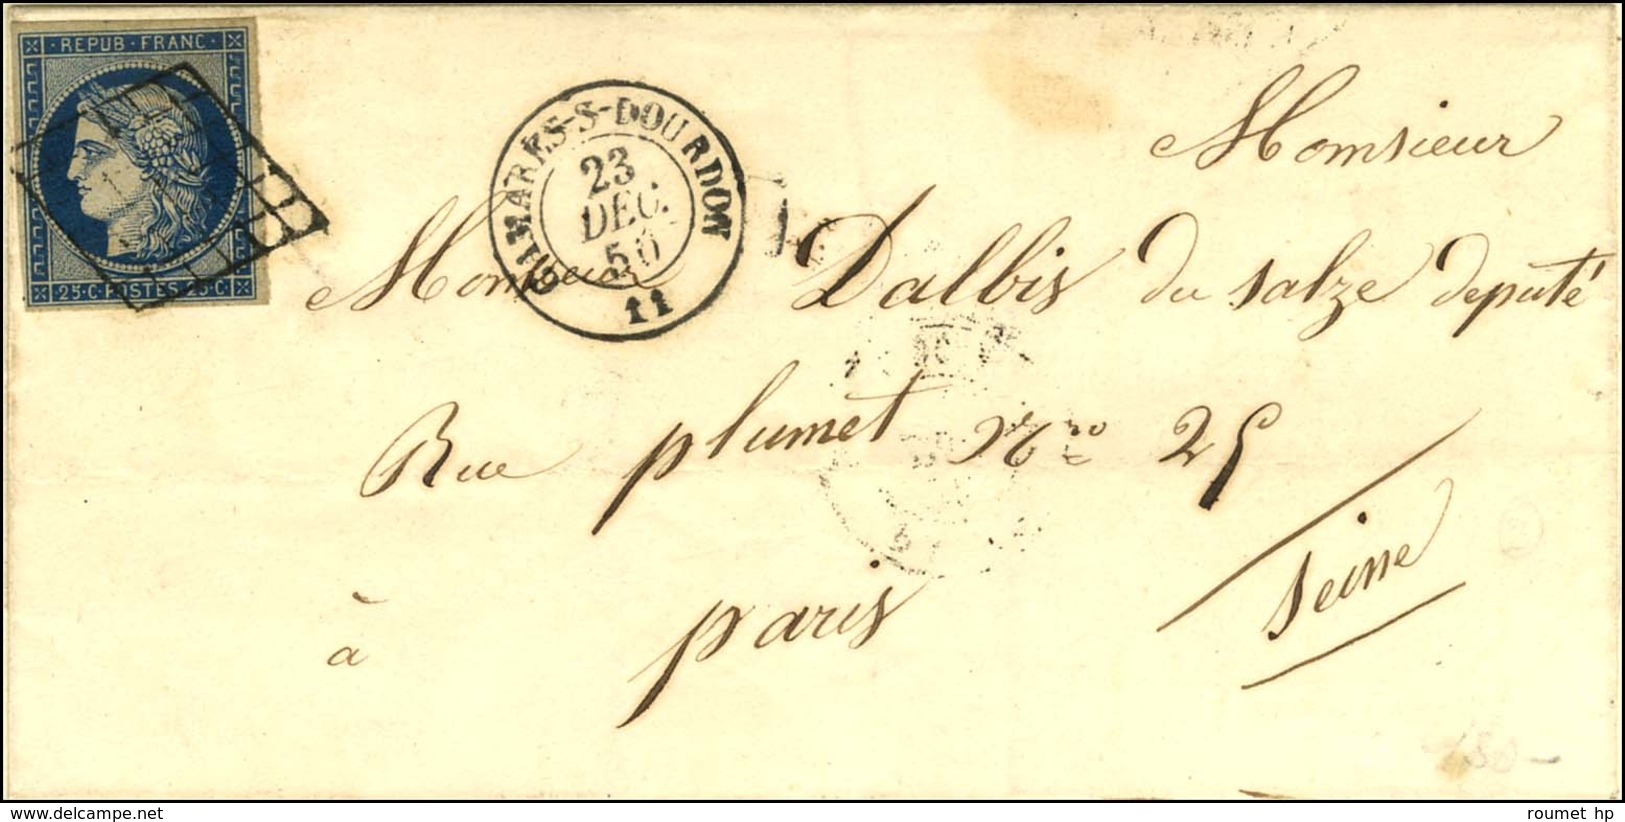 REPUB·FRANC·
25·C·POSTES·25·C·
CAMARES-S-DOURDON
23
DEC.
50
11
Monsieur
Monsieur Dalbis du salze deputé
Rue plumet Nro 25
à paris
Seine
www.delcampe.net
roumet hp